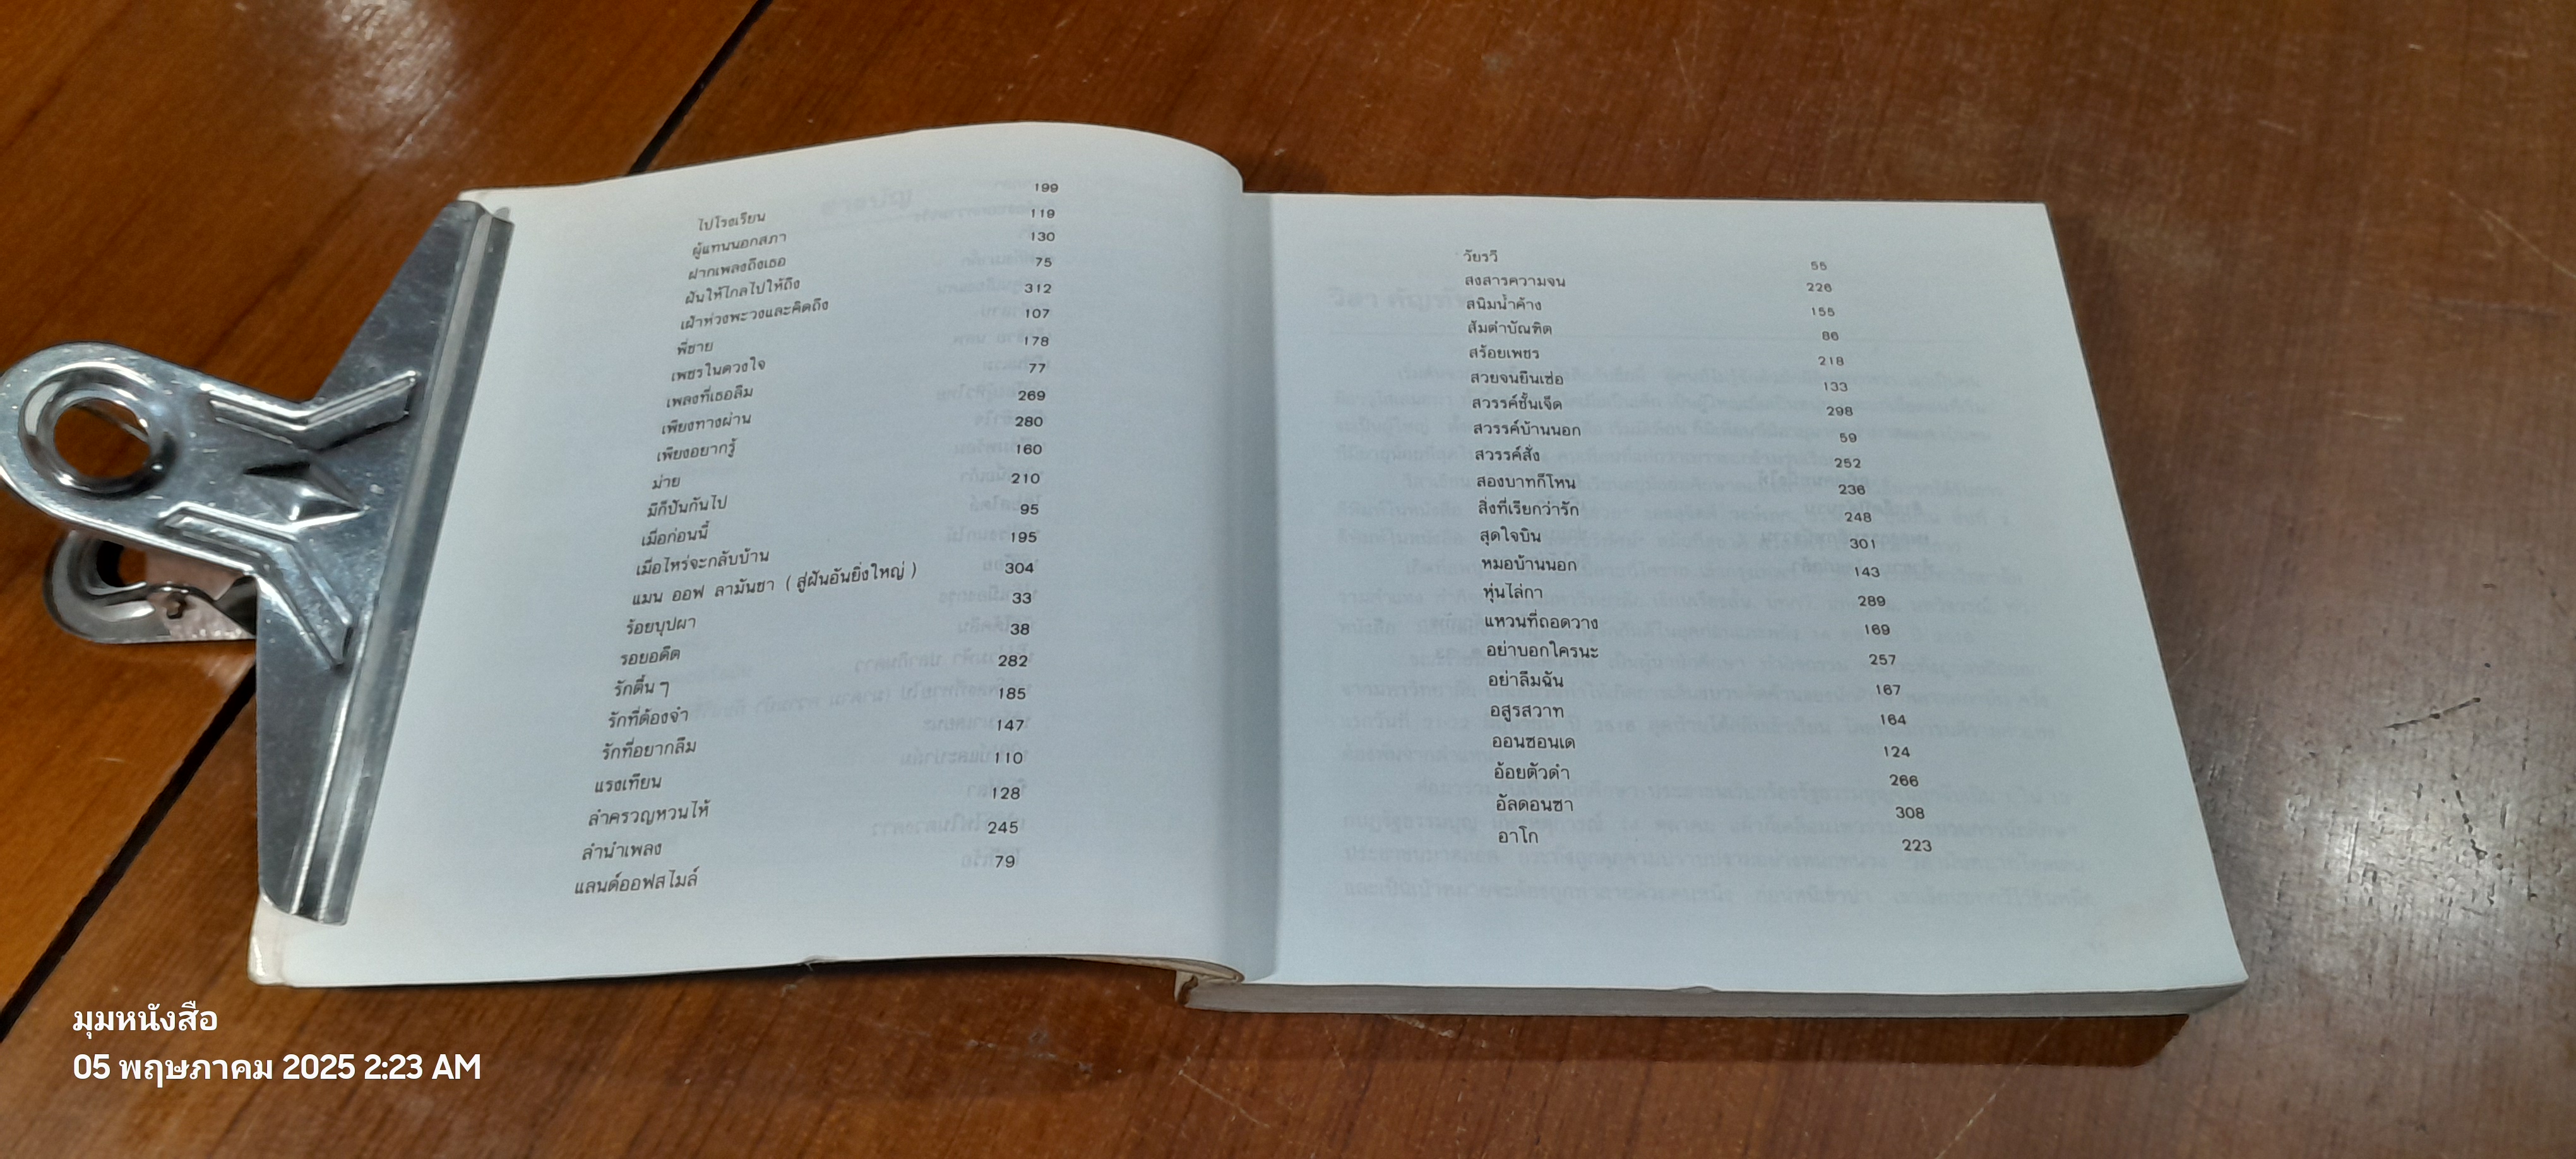 ไปโรงเรียน 199
ผู้แทนนอกสภา 119
ฝากเพลงถึงเธอ 130
ฝันให้ไกลไปให้ถึง 75
เฝ้าห่วงพะวงและคิดถึง 312
พี่ชาย 107
เพชรในดวงใจ 178
เพลงที่เธอลืม 77
เพียงทางผ่าน 269
เพียงอยากรู้ 280
ม่าย 160
มีก็ปันกันไป 210
เมื่อก่อนนี้ 95
เมื่อไหร่จะกลับบ้าน 195
แมน ออฟ ลามันชา ( สู่ฝันอันยิ่งใหญ่ ) 304
ร้อยบุปผา 33
รอยอดีต 38
รักตื้น ๆ 282
รักที่ต้องจำ 185
รักที่อยากลืม 147
แรงเทียน 110
ลำครวญหวนไห้ 128
ลำนำเพลง 245
แลนด์ออฟสไมล์ 79
วัยรวี 55
สงสารความจน 226
สนิมน้ำค้าง 155
ส้มตำบัณฑิต 86
สร้อยเพชร 218
สวยจนยืนเซ่อ 133
สวรรค์ชั้นเจ็ด 298
สวรรค์บ้านนอก 59
สวรรค์สั่ง 252
สองบาทก็โหน 236
สิ่งที่เรียกว่ารัก 248
สุดใจบิน 301
หมอบ้านนอก 143
หุ่นไล่กา 289
แหวนที่ถอดวาง 169
อย่าบอกใครนะ 257
อย่าลืมฉัน 167
อสูรสวาท 164
ออนซอนเด 124
อ้อยตัวดำ 266
อัลดอนซา 308
อาโก 223
มุมหนังสือ
05 พฤษภาคม 2025 2:23 AM